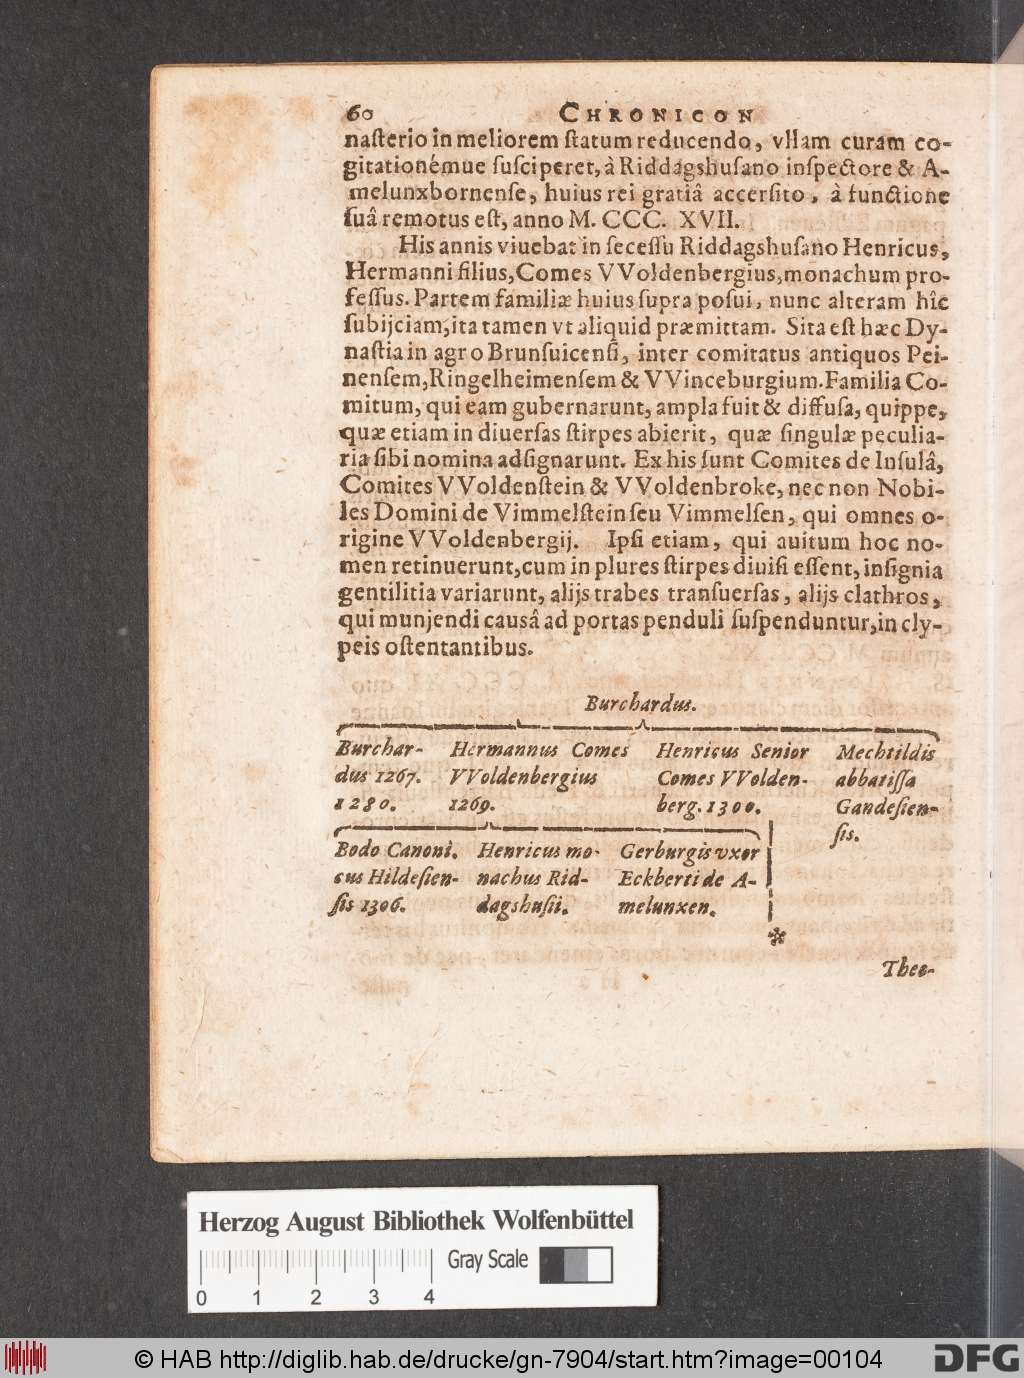 60 CHRONICON
naſterio in meliorem ſtatum reducendo, vllam curam co-
gitationémue ſuſciperet, à Riddagshuſano inſpectore & A-
melunxbornenſe, huius rei gratiâ accerſito, à functione
ſuâ remotus eſt, anno M. CCC. XVII.
His annis viuebat in ſeceſſu Riddagshuſano Henricus,
Hermanni filius, Comes VVoldenbergius, monachum pro-
feſſus. Partem familiæ huius ſupra poſui, nunc alteram hîc
ſubijciam, ita tamen vt aliquid præmittam. Sita eſt hæc Dy-
naſtia in agro Brunſuicenſi, inter comitatus antiquos Pei-
nenſem, Ringelheimenſem & VVinceburgium. Familia Co-
mitum, qui eam gubernarunt, ampla fuit & diffuſa, quippe,
quæ etiam in diuerſas ſtirpes abierit, quæ ſingulæ peculia-
ria ſibi nomina adſignarunt. Ex his ſunt Comites de Inſulâ,
Comites VVoldenſtein & VVoldenbroke, nec non Nobi-
les Domini de Vimmelſtein ſeu Vimmelſen, qui omnes o-
rigine VVoldenbergij. Ipſi etiam, qui auitum hoc no-
men retinuerunt, cum in plures ſtirpes diuiſi eſſent, inſignia
gentilitia variarunt, alijs trabes tranſuerſas, alijs clathros,
qui munjendi causâ ad portas penduli ſuſpenduntur, in cly-
peis oſtentantibus.
Burchardus.
Burchar- Hermannus Comes Henricus Senior Mechtildis
dus 1267. VVoldenbergius Comes VVolden- abbatiſſa
1280. 1269. berg. 1300. Gandeſien-
ſis.
Bodo Canoni. Henricus mo- Gerburgis vxor
cus Hildeſien- nachus Rid- Eckberti de A-
ſis 1306. dagshuſii. melunxen.
*
Theo-
Herzog August Bibliothek Wolfenbüttel
Gray Scale
0 1 2 3 4
© HAB http://diglib.hab.de/drucke/gn-7904/start.htm?image=00104
DFG